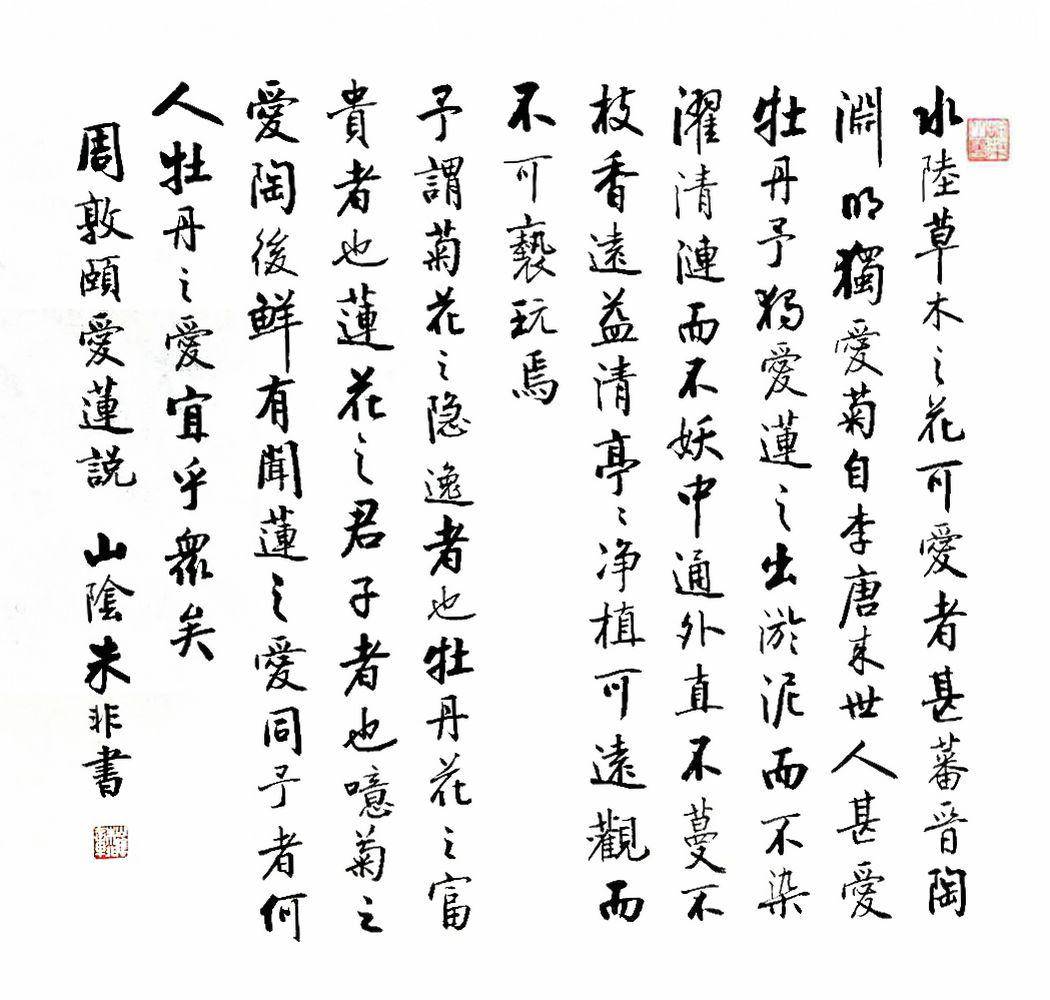 水陸草木之花可愛者甚蕃晉陶
淵明獨愛菊自李唐来世人甚愛
牡丹予獨愛蓮之出淤泥而不染
濯清漣而不妖中通外直不蔓不
枝香遠益清亭〻净植可遠觀而
不可褻玩焉
予謂菊花之隐逸者也牡丹花之富
貴者也蓮花之君子者也噫菊之
愛陶後鮮有聞蓮之愛同予者何
人牡丹之愛宜乎衆矣
周敦頤愛蓮説 山陰朱非書